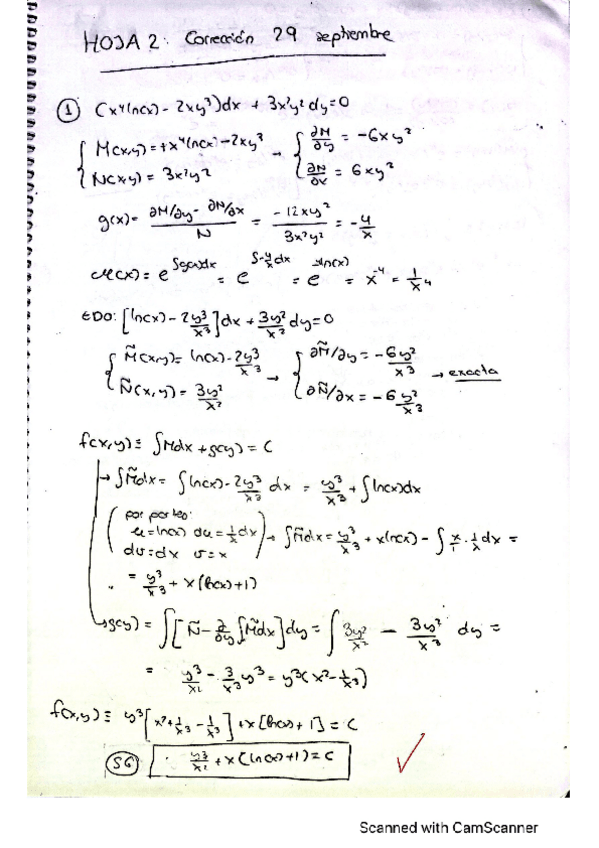 HOJA 2: Corrección 29 septiembre
① (x⁴ln(x) - 2xy³)dx + 3x²y²dy=0
M(x,y) = +x⁴ln(x) - 2xy³ → ∂M/∂y = -6xy²
N(x,y) = 3x²y² ∂N/∂x = 6xy²
g(x) = (∂M/∂y - ∂N/∂x)/N = -12xy²/3x²y² = -4/x
μ(x) = e^∫g(x)dx = e^∫-4/x dx = e^-4ln(x) = x⁻⁴ = 1/x⁴
EDO: [ln(x) - 2y³/x³]dx + 3y²/x² dy=0
M̃(x,y) = ln(x) - 2y³/x³ → ∂M̃/∂y = -6y²/x³ → exacta
Ñ(x,y) = 3y²/x² ∂Ñ/∂x = -6y²/x³
f(x,y) ≡ ∫Mdx + g(y) = C
→ ∫M̃dx = ∫ln(x) - 2y³/x³ dx = y³/x³ + ∫ln(x)dx
por partes:
u=ln(x) du=1/x dx → ∫M̃dx = y³/x³ + xln(x) - ∫x/1 · 1/x dx =
dv=dx v=x
= y³/x³ + x(ln(x)+1)
→ g(y) = ∫[Ñ - ∂/∂y ∫M̃dx]dy = ∫ 3y²/x² - 3y²/x³ dy =
= y³/x² - 3/x³ y³ = y³(x² - 1/x³)
f(x,y) ≡ y³[x²+1/x³ - 1/x³] + x[ln(x) + 1] = C
SG y³/x² + x(ln(x)+1) = C
Scanned with CamScanner